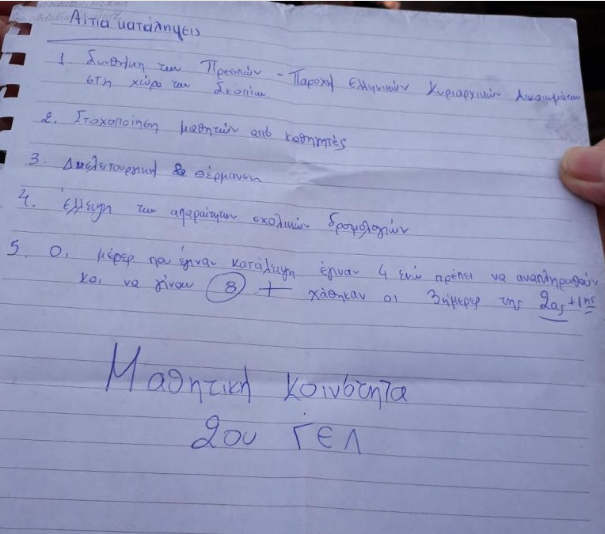 Αίτια κατάληψεις
1. Συνθήκη των Πρεσπών - Παροχή Ελληνικών Κυριαρχικών Δικαιωμάτων
στη χώρα των Σκοπίων
2. Στοχοποίηση μαθητών από καθηγητές
3. Δυσλειτουργική θέρμανση
4. έλλειψη των απαραίτητων σχολικών δρομολογιών
5. Οι μέρες που έγιναν κατάληψη έγιναν 4 ενώ πρέπει να αναπληρωθούν
και να γίνουν 8 + χάθηκαν οι 3ήμερες της 2ας + 1ης
Μαθητική Κοινότητα
2ου ΓΕΛ